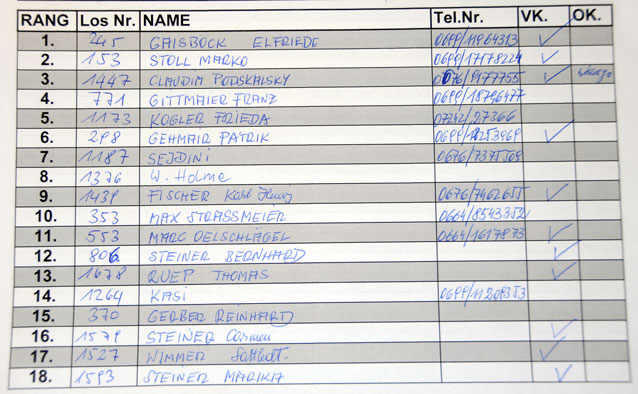 RANG Los Nr. NAME Tel.Nr. VK. OK.
1. 245 GAISBÖCK ELFRIEDE 0699/11964313
2. 153 STOLL MARKO 0699/17178224
3. 1447 CLAUDIA PODSKALSKY 0676/9177755
4. 771 GITTMAIER FRANZ 0699/18796477
5. 1173 KOGLER FRIEDA 07242/27366
6. 298 GEHMAIR PATRIK
7. 1187 SEJDINI
8. 1376 W. Holme
9. 1439 FISCHER Karl Heinz 0676/7462655
10. 353 MAX STRASSMEIER 0664/8543352
11. 553 MARC OELSCHLÄGEL 0664/1617873
12. 806 STEINER BERNHARD
13. 1678 RUEP THOMAS
14. 1264 KASI
15. 370 GERBER REINHARD
16. 1579 STEINER Carmen
17. 1527 WIMMER
18. 1593 STEINER MARIKA